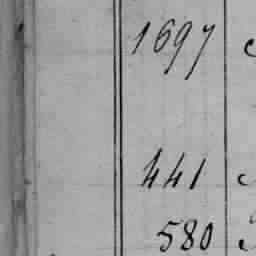 1697
441
580